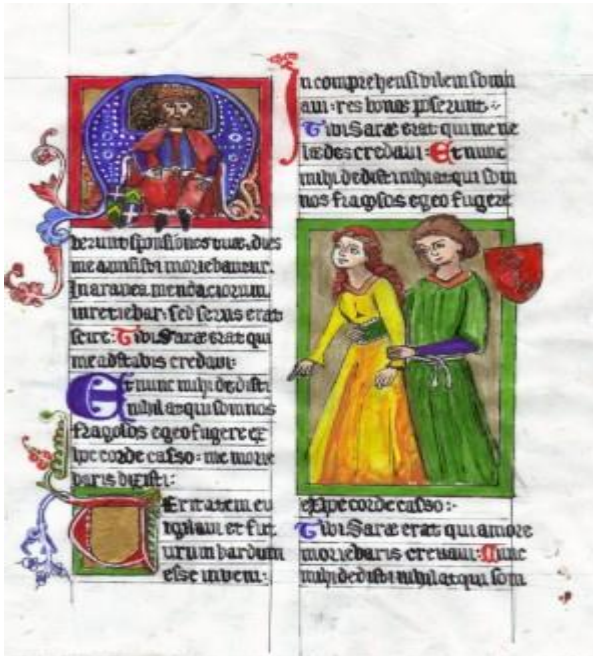 derunt sponsiones tuae, dies
me amisisti moriebantur.
In aranea mendaciorum
inretiebar: sed serus erat
scire: Tibi Sarae erat qui
me adstabis credavi:
Et nunc mihi dedisti
nihil atque somnos
fragosos egeo fugere ex
ipe corde casso: me morie
baris dixisti:
Veritatem ev
igilavi et fut
urum bardum
esse inveni:
In comprehensibilem somn
avi: res bonas poserunt
Tibi Sarae erat qui me ne
laedes credavi: Et nunc
mihi dedisti nihil atqui som
nos fragosos egeo fugere
exipe corde casso:
Tibi Sarae erat qui amore
moriebaris credavi: Nunc
mihi dedisti nihil atqui som